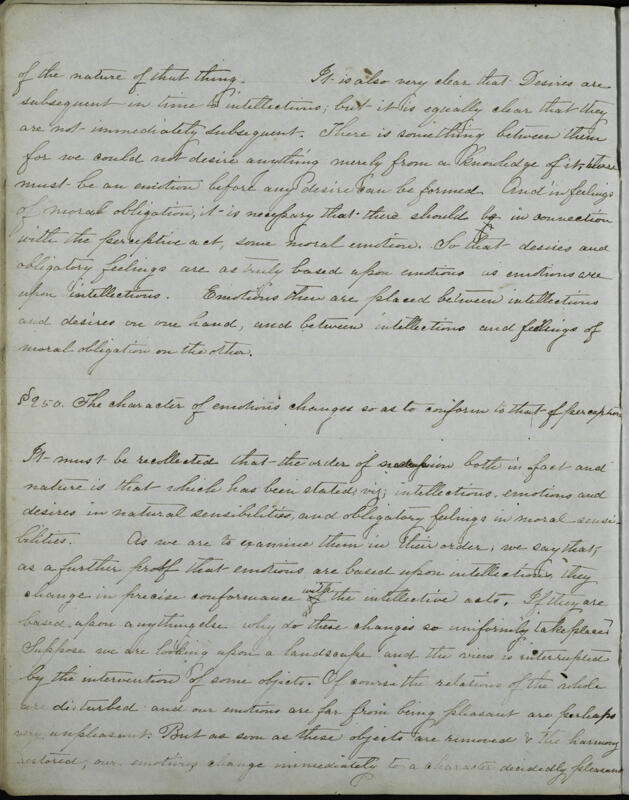 of the nature of that thing. It is also very clear that Desires are
subsequent in time to intellections; but it is equally clear that they
are not immediately subsequent. There is something between them
for we could not desire anything merely from a knowledge of it, there
must be an emotion before any desire can be formed And in feelings
of moral obligation, it is necessary that there should be in connection
with the perceptive act, some moral emotion. So that desires and
obligatory feelings are as truly based upon emotions as emotions are
upon intellections. Emotions then are placed between intellections
and desires on one hand, and between intellections and feelings of
moral obligation on the other.
§250. The character of emotions changes so as to conform to that of perceptions
It must be recollected that the order of succession both in fact and
nature is that which has been stated, viz; intellections, emotions and
desires in natural sensibilities, and obligatory feelings in moral sensi-
bilities. As we are to examine them in their order, we say that,
as a further proof that emotions are based upon intellections, they
change in precise conformance with the intellective acts. If they are
based upon anything else why do these changes so uniformly take place?
Suppose we are looking upon a landscape and the view is interrupted
by the intervention of some objects. Of course the relations of the whole
are disturbed and our emotions are far from being pleasant are perhaps
very unpleasant. But as soon as these objects are removed & the harmony
restored, our emotions change immediately to a character decidedly pleasant